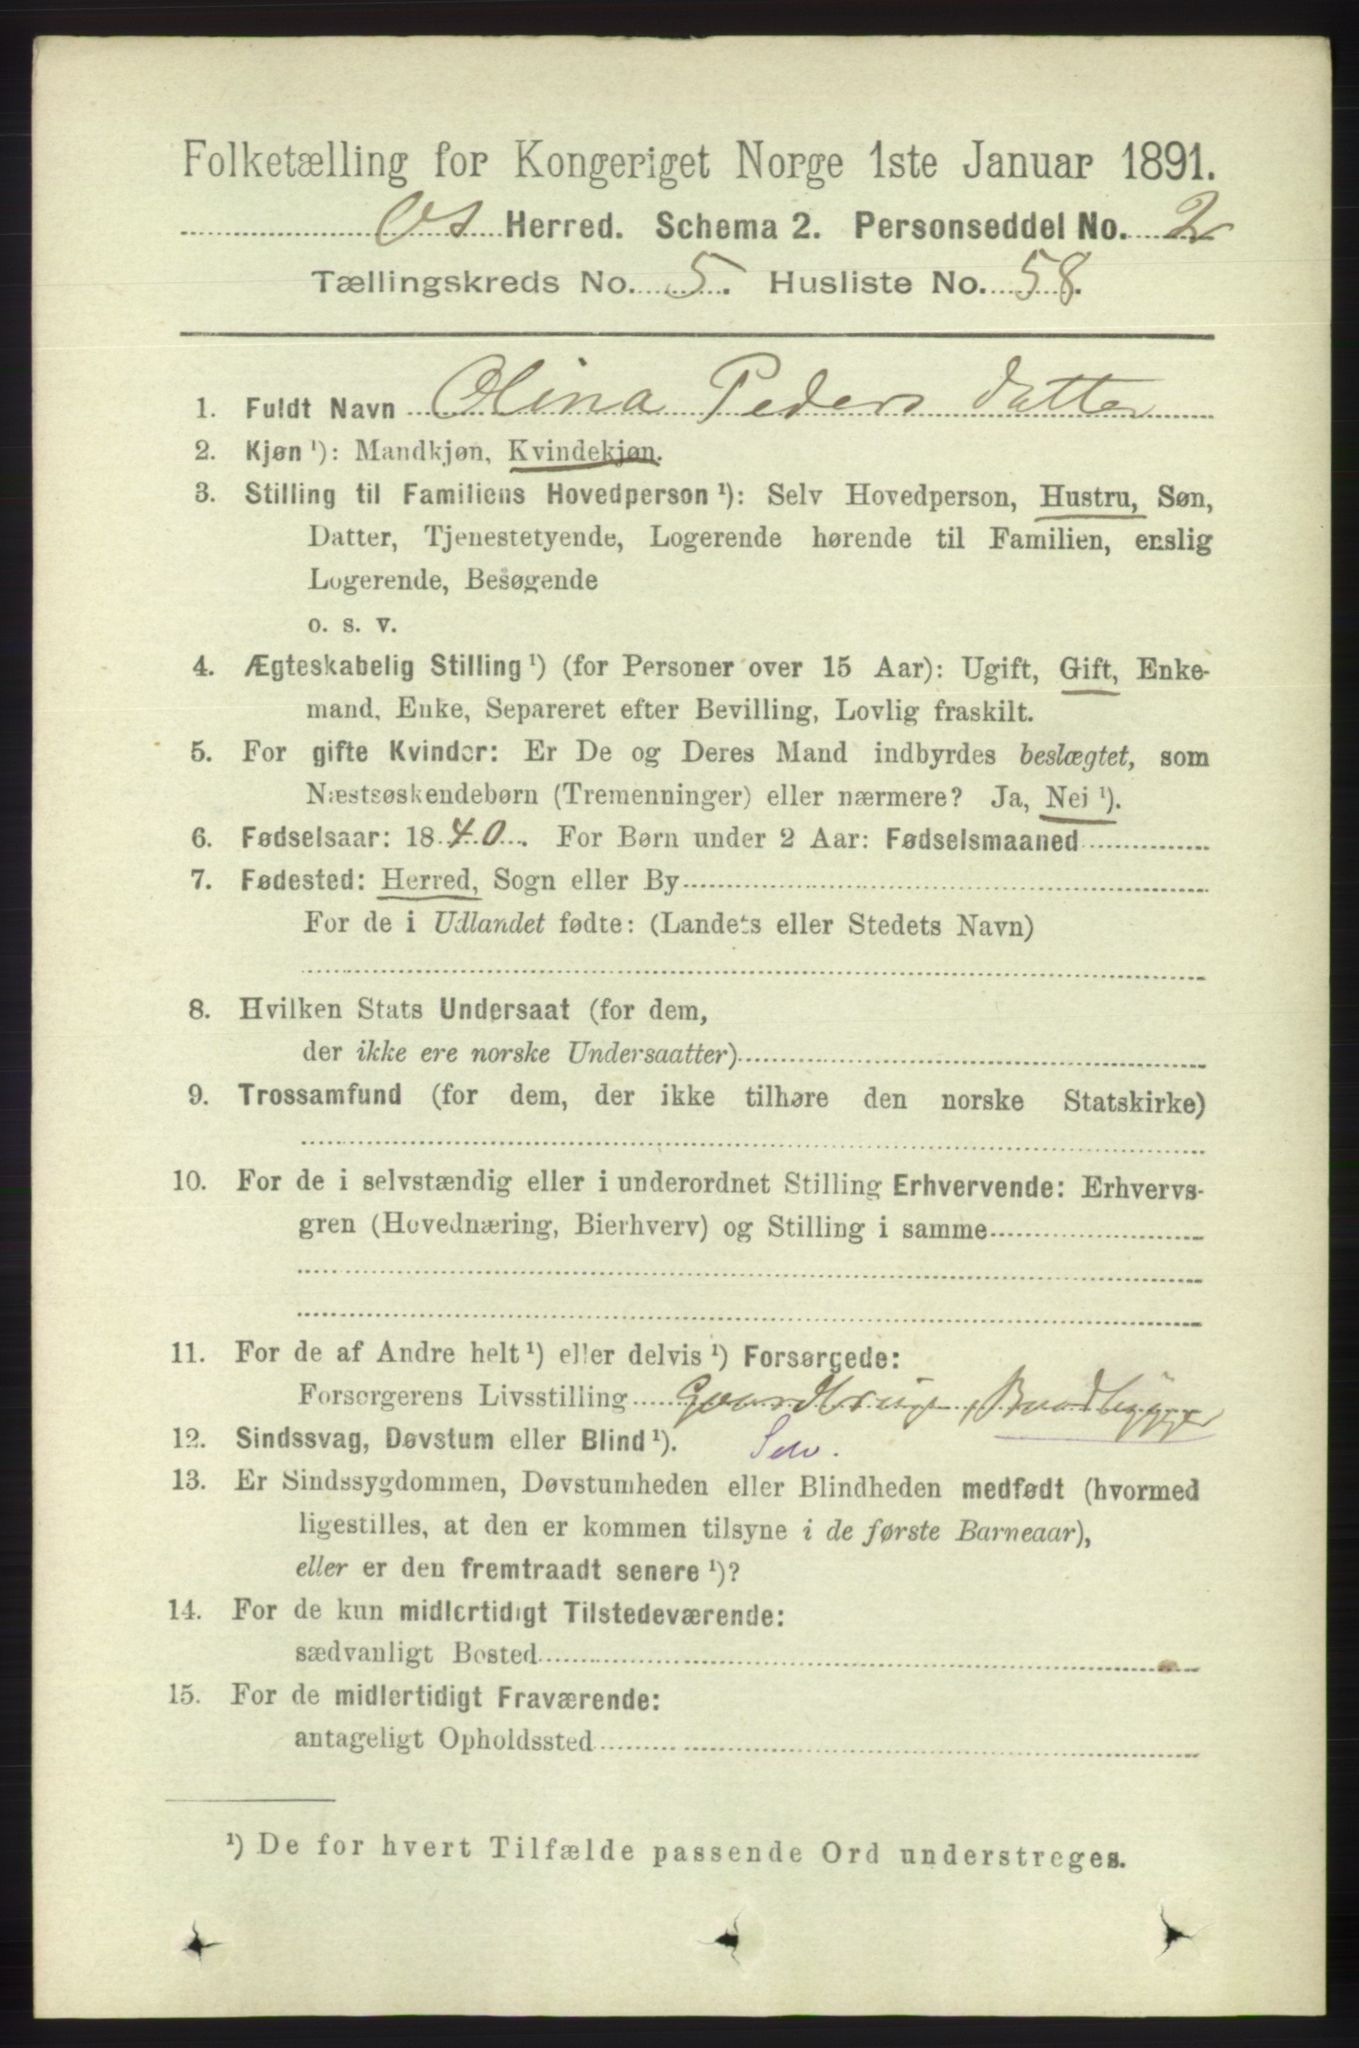 Folketælling for Kongeriget Norge 1ste Januar 1891.
Os Herred. Schema 2. Personseddel No. 2
Tællingskreds No. 5. Husliste No. 58.
1. Fuldt Navn Olina Peders datter
2. Kjøn ¹): Mandkjøn, Kvindekjøn.
3. Stilling til Familiens Hovedperson ¹): Selv Hovedperson, Hustru, Søn,
Datter, Tjenestetyende, Logerende hørende til Familien, enslig
Logerende, Besøgende
o. s. v.
4. Ægteskabelig Stilling ¹) (for Personer over 15 Aar): Ugift, Gift, Enke-
mand, Enke, Separeret efter Bevilling, Lovlig fraskilt.
5. For gifte Kvinder: Er De og Deres Mand indbyrdes beslægtet, som
Næstsøskendebørn (Tremenninger) eller nærmere? Ja, Nei ¹).
6. Fødselsaar: 1840. For Børn under 2 Aar: Fødselsmaaned
7. Fødested: Herred, Sogn eller By
For de i Udlandet fødte: (Landets eller Stedets Navn)
8. Hvilken Stats Undersaat (for dem,
der ikke ere norske Undersaatter)
9. Trossamfund (for dem, der ikke tilhøre den norske Statskirke)
10. For de i selvstændig eller i underordnet Stilling Erhvervende: Erhvervs-
gren (Hovednæring, Bierhverv) og Stilling i samme
11. For de af Andre helt ¹) eller delvis ¹) Forsørgede:
Forsørgerens Livsstilling Gaardbruger, Baadbygger
12. Sindssvag, Døvstum eller Blind ¹). Selv.
13. Er Sindssygdommen, Døvstumheden eller Blindheden medfødt (hvormed
ligestilles, at den er kommen tilsyne i de første Barneaar),
eller er den fremtraadt senere ¹)?
14. For de kun midlertidigt Tilstedeværende:
sædvanligt Bosted
15. For de midlertidigt Fraværende:
antageligt Opholdssted
¹) De for hvert Tilfælde passende Ord understreges.